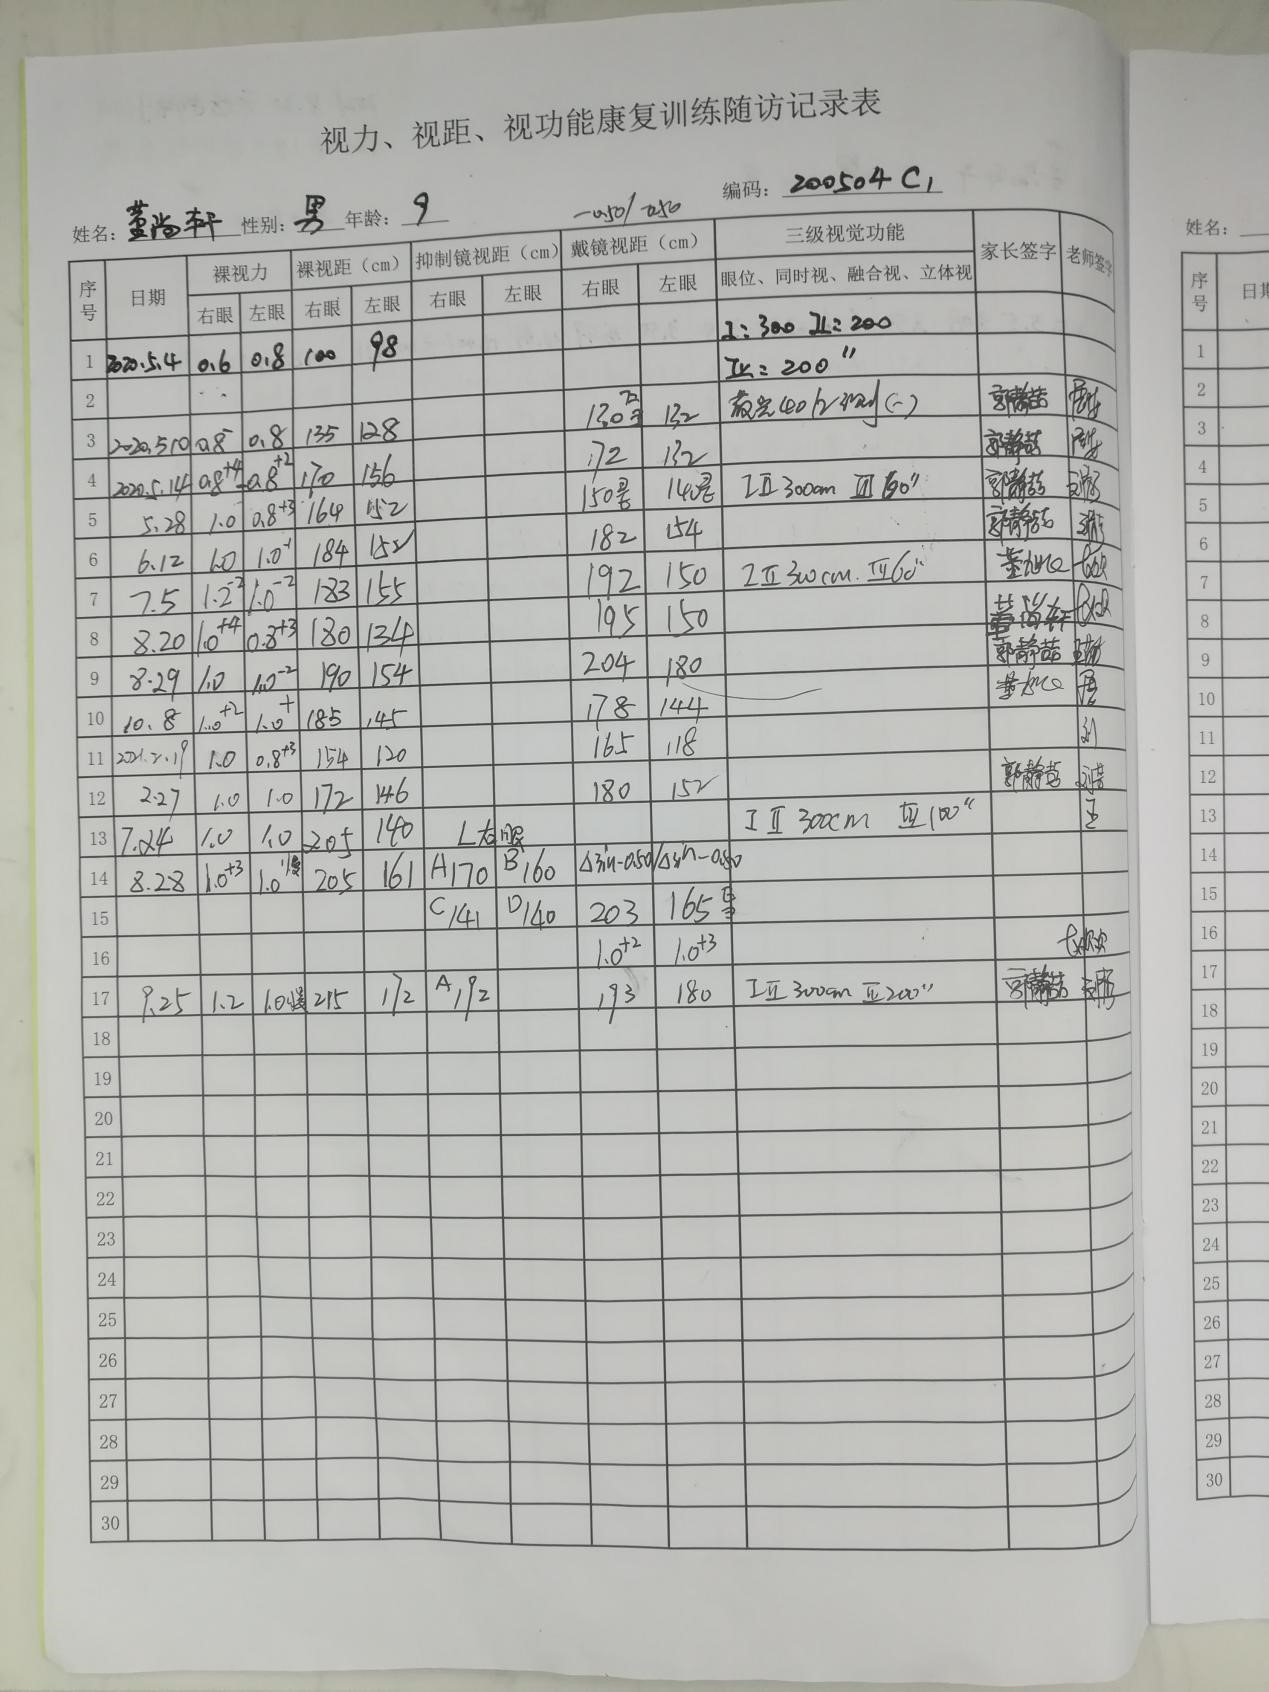 视力、视距、视功能康复训练随访记录表
姓名：董尚轩 性别：男 年龄：9 编码：200504 C1
-0.50/-0.50
序号 日期 裸视力 裸视距（cm） 抑制镜视距（cm） 戴镜视距（cm） 三级视觉功能 家长签字 老师签字
右眼 左眼 右眼 左眼 右眼 左眼 右眼 左眼 眼位、同时视、融合视、立体视
I：300 II：200
1 2020.5.4 0.6 0.8 100 98 200"
2 130 132 散光 (-) 郭静喆
3 2020.5.10 0.8- 0.8 135 128 172 132 郭静喆
4 2020.5.14 0.8+4 0.8+2 170 156 150 140 I II 300cm III 60" 郭静喆
5 5.28 1.0 0.8+3 164 152 182 154 郭静喆
6 6.12 1.0 1.0-1 184 152 192 150 I II 300cm. III 60"
7 7.5 1.2-2 1.0-2 183 155 195 150 董尚轩
8 8.20 1.0+4 0.8+3 180 134 204 180 郭静喆
9 8.29 1.0 1.0-2 190 154 178 144
10 10.8 1.0+2 1.0+ 185 145 165 118 刘
11 2021.2.19 1.0 0.8+3 154 120 180 152 郭静喆
12 2.27 1.0 1.0 172 146 I II 300cm III 100" 王
13 7.24 1.0 1.0 205 140 L右眼
14 8.28 1.0+3 1.0慢 205 161 A170 B160 -0.50 -0.50
15 C141 D140 203 165
16 1.0+2 1.0+3
17 9.25 1.2 1.0慢 215 172 A192 193 180 I II 300cm III 200" 郭静喆
18
19
20
21
22
23
24
25
26
27
28
29
30
姓名：
序号 日期
1
2
3
4
5
6
7
8
9
10
11
12
13
14
15
16
17
18
19
20
21
22
23
24
25
26
27
28
29
30